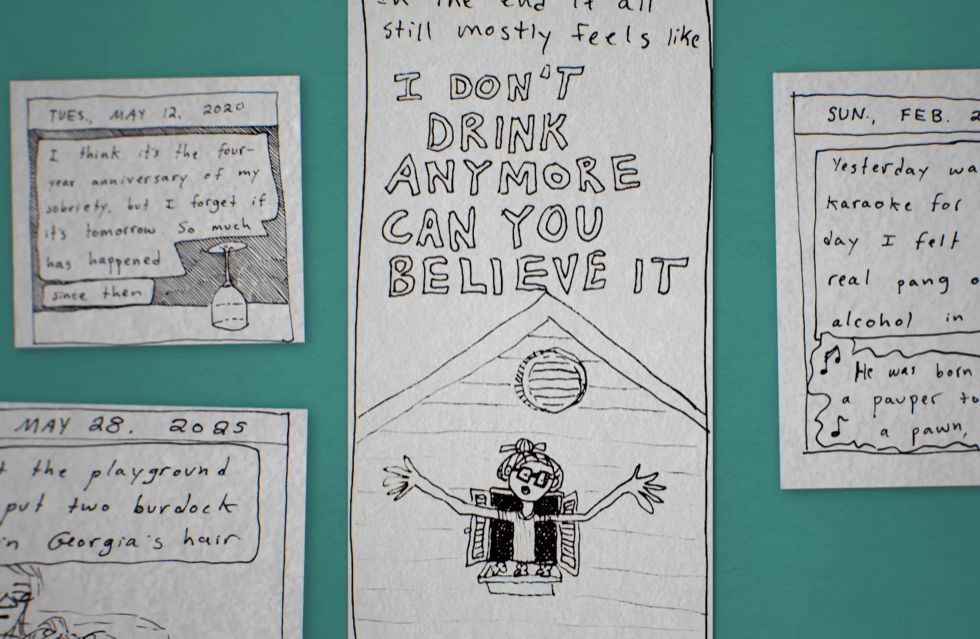 in the end it all
still mostly feels like
I DON'T
DRINK
ANYMORE
CAN YOU
BELIEVE IT
TUES., MAY 12, 2020
I think it's the four-
year anniversary of my
sobriety, but I forget if
it's tomorrow. So much
has happened
since then
MAY 28. 2025
the playground
put two burdock
in Georgia's hair
SUN., FEB. 2
Yesterday wa
karaoke for
day I felt
real pang o
alcohol in
He was born
a pauper to
a pawn,